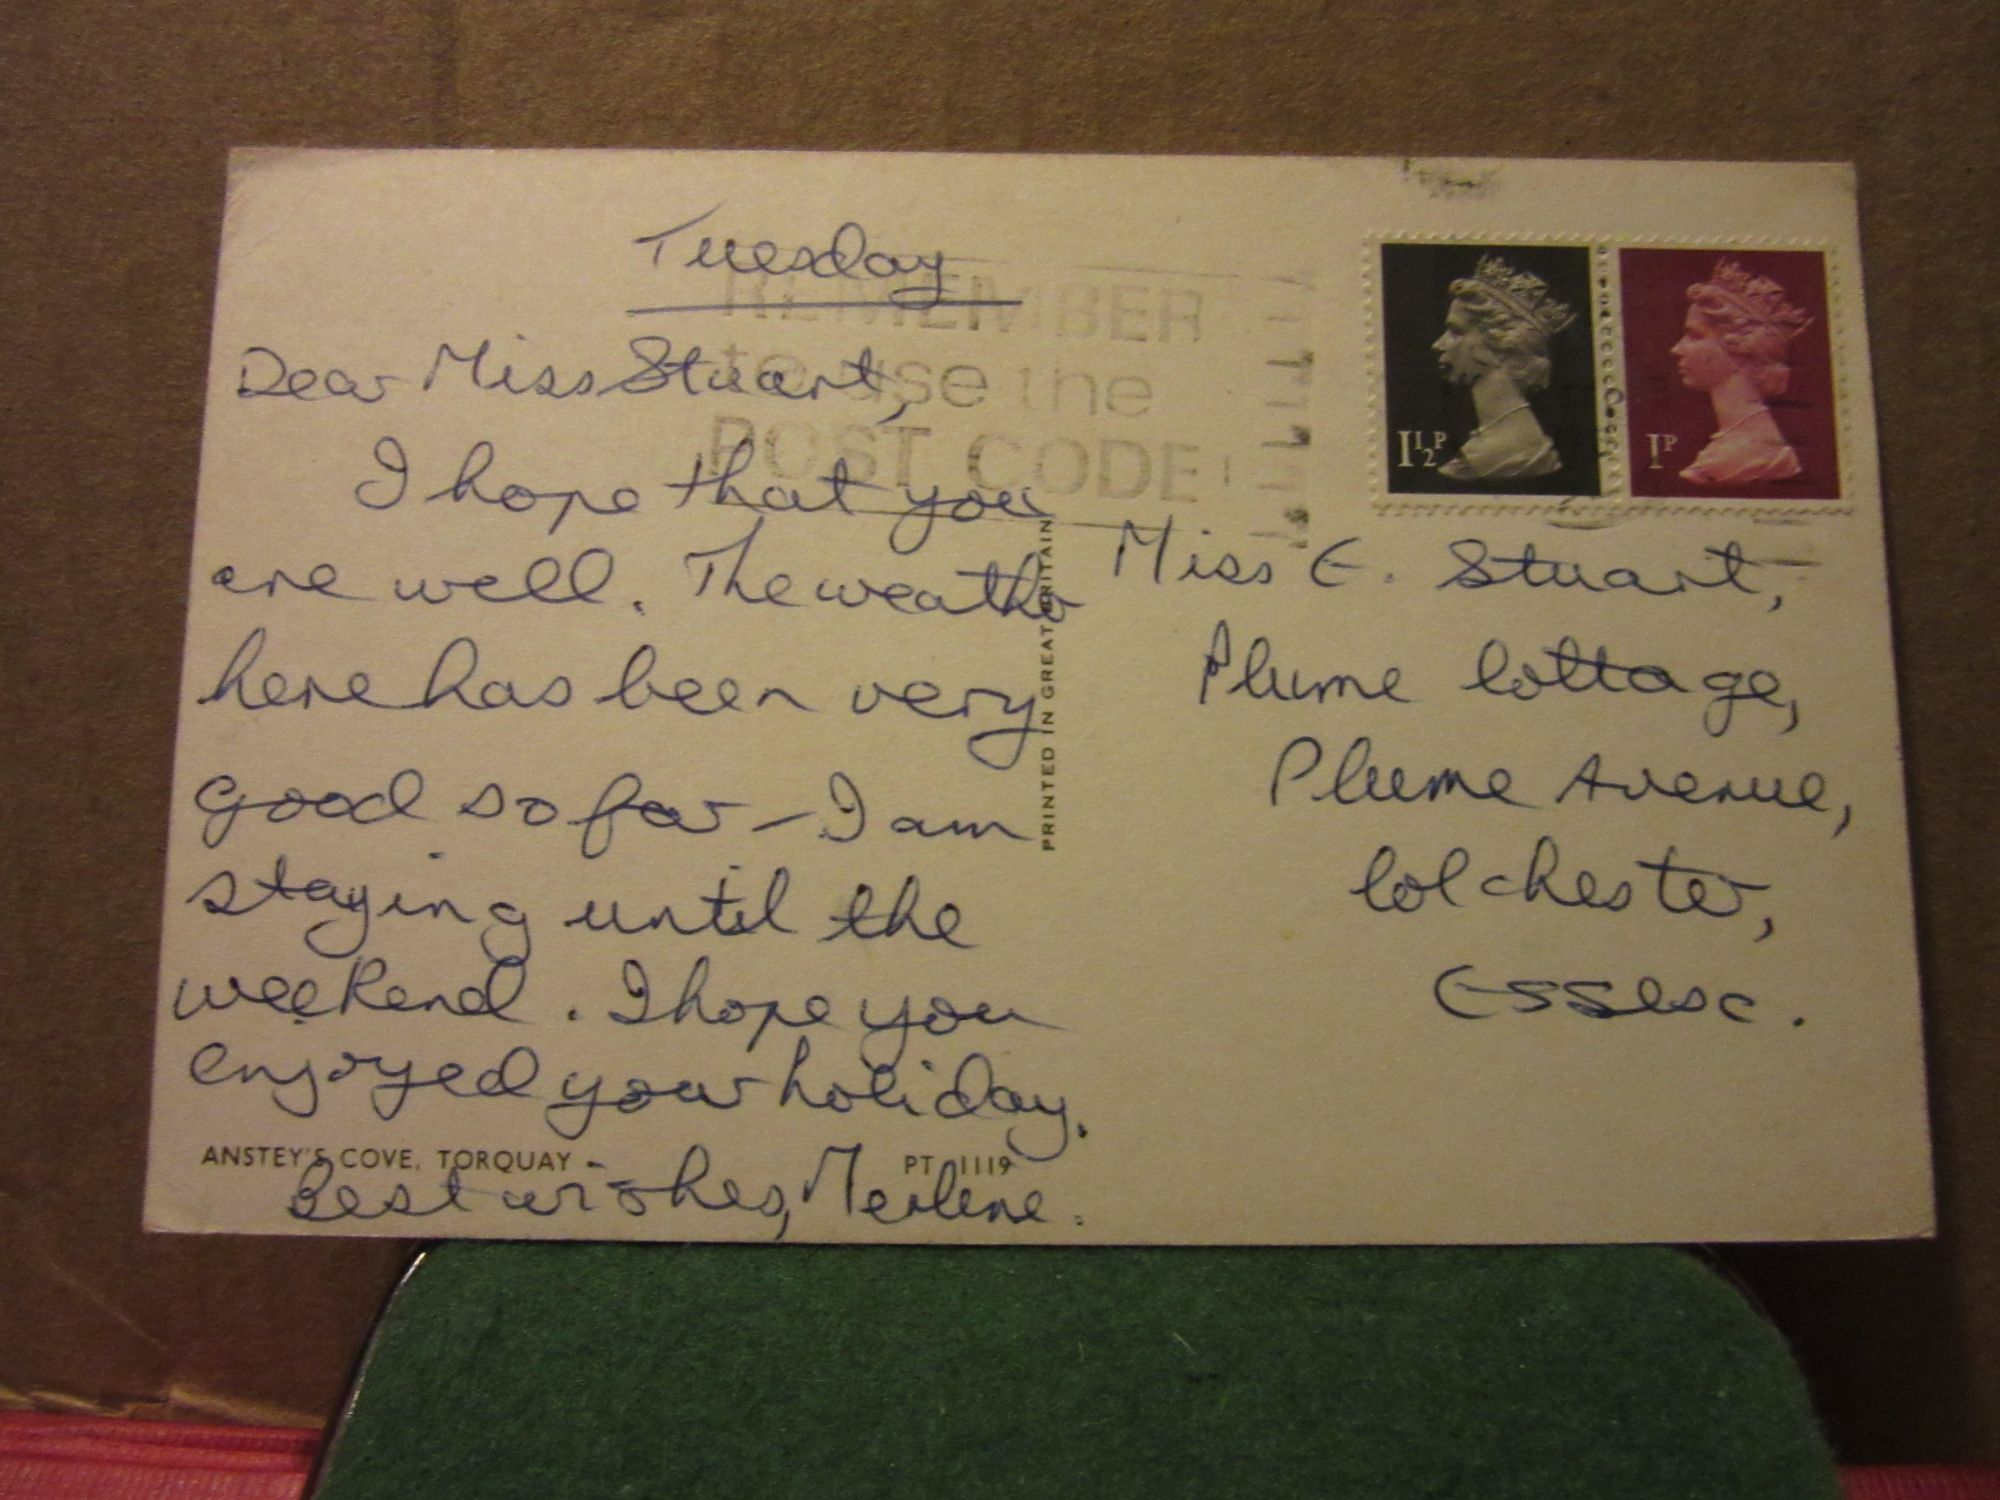 Tuesday
REMEMBER
to use the
POST CODE
Dear Miss Stuart,
I hope that you
are well. The weather
here has been very
good so far - I am
staying until the
weekend. I hope you
enjoyed your holiday.
Best wishes, Merlene.
ANSTEY'S COVE, TORQUAY
PT 1119
PRINTED IN GREAT BRITAIN
1½P
1P
Miss E. Stuart,
Plume Cottage,
Plume Avenue,
Colchester,
Essex.